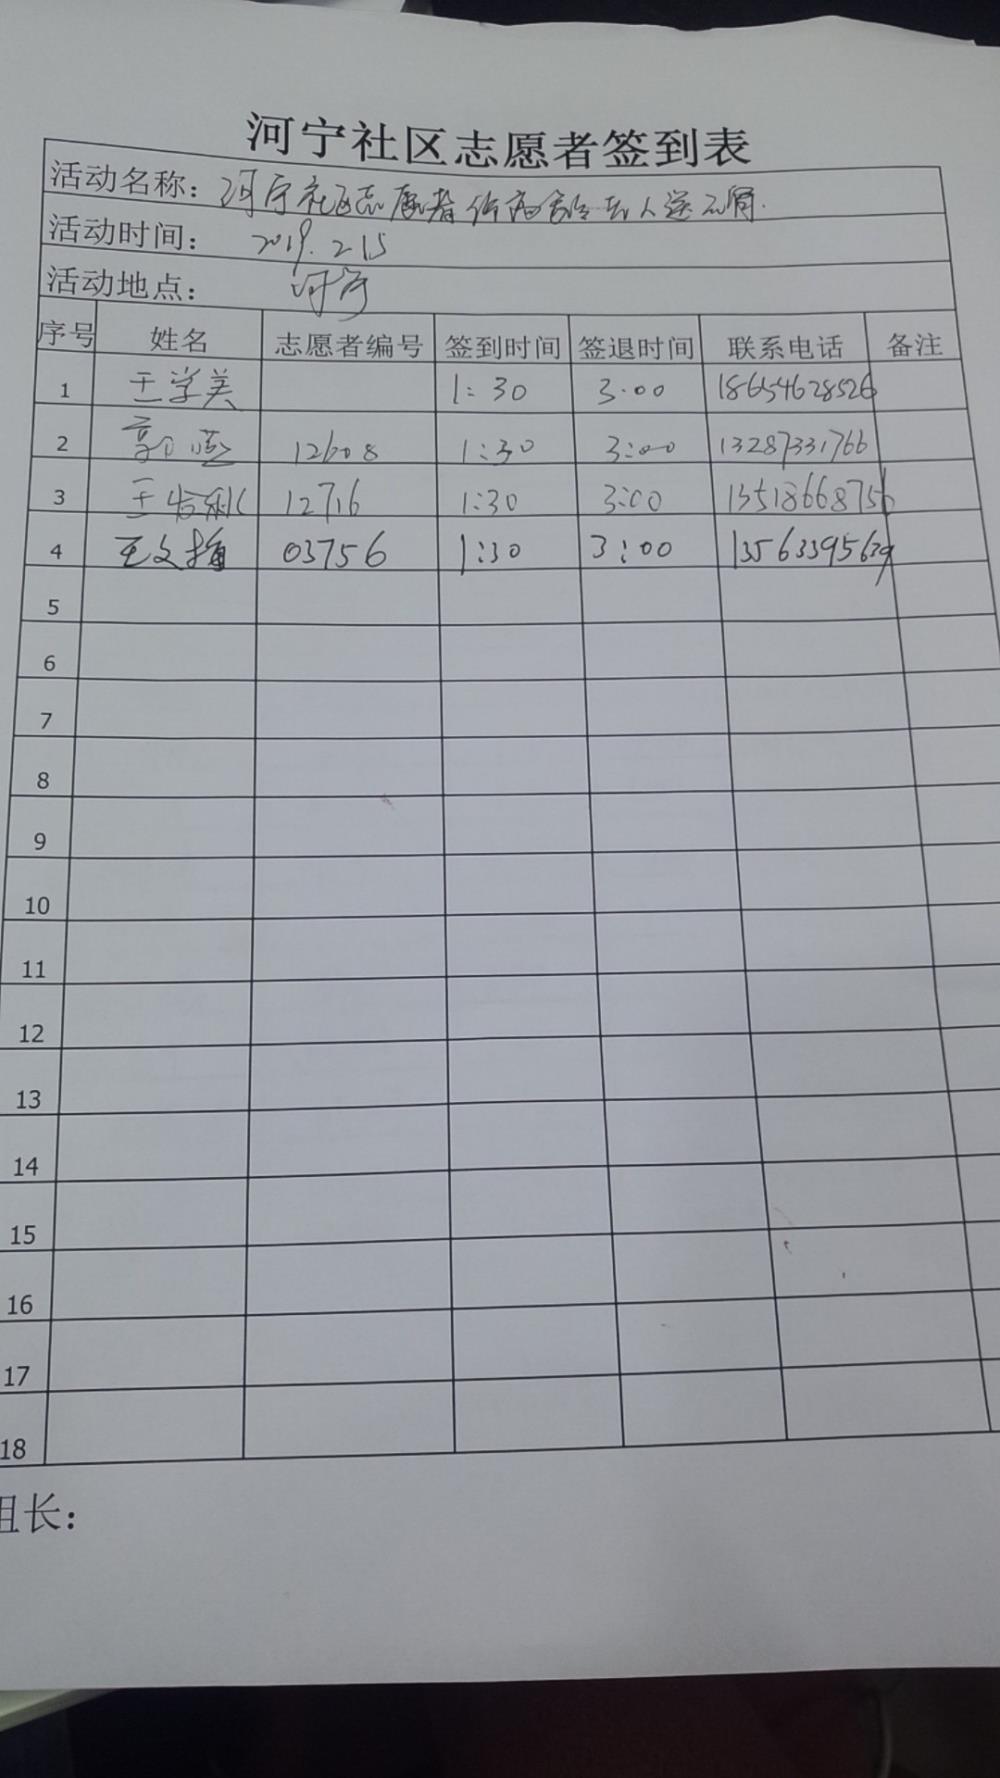 河宁社区志愿者签到表
活动名称：河宁社区志愿者给高龄老人送元宵.
活动时间： 2019.2.15
活动地点： 河宁
序号 姓名 志愿者编号 签到时间 签退时间 联系电话 备注
1 王学美 1:30 3:00 18654628526
2 郭 12608 1:30 3:00 13287331766
3 王 12716 1:30 3:00 13518668756
4 王文梅 03756 1:30 3:00 13563395639
5
6
7
8
9
10
11
12
13
14
15
16
17
18
组长：